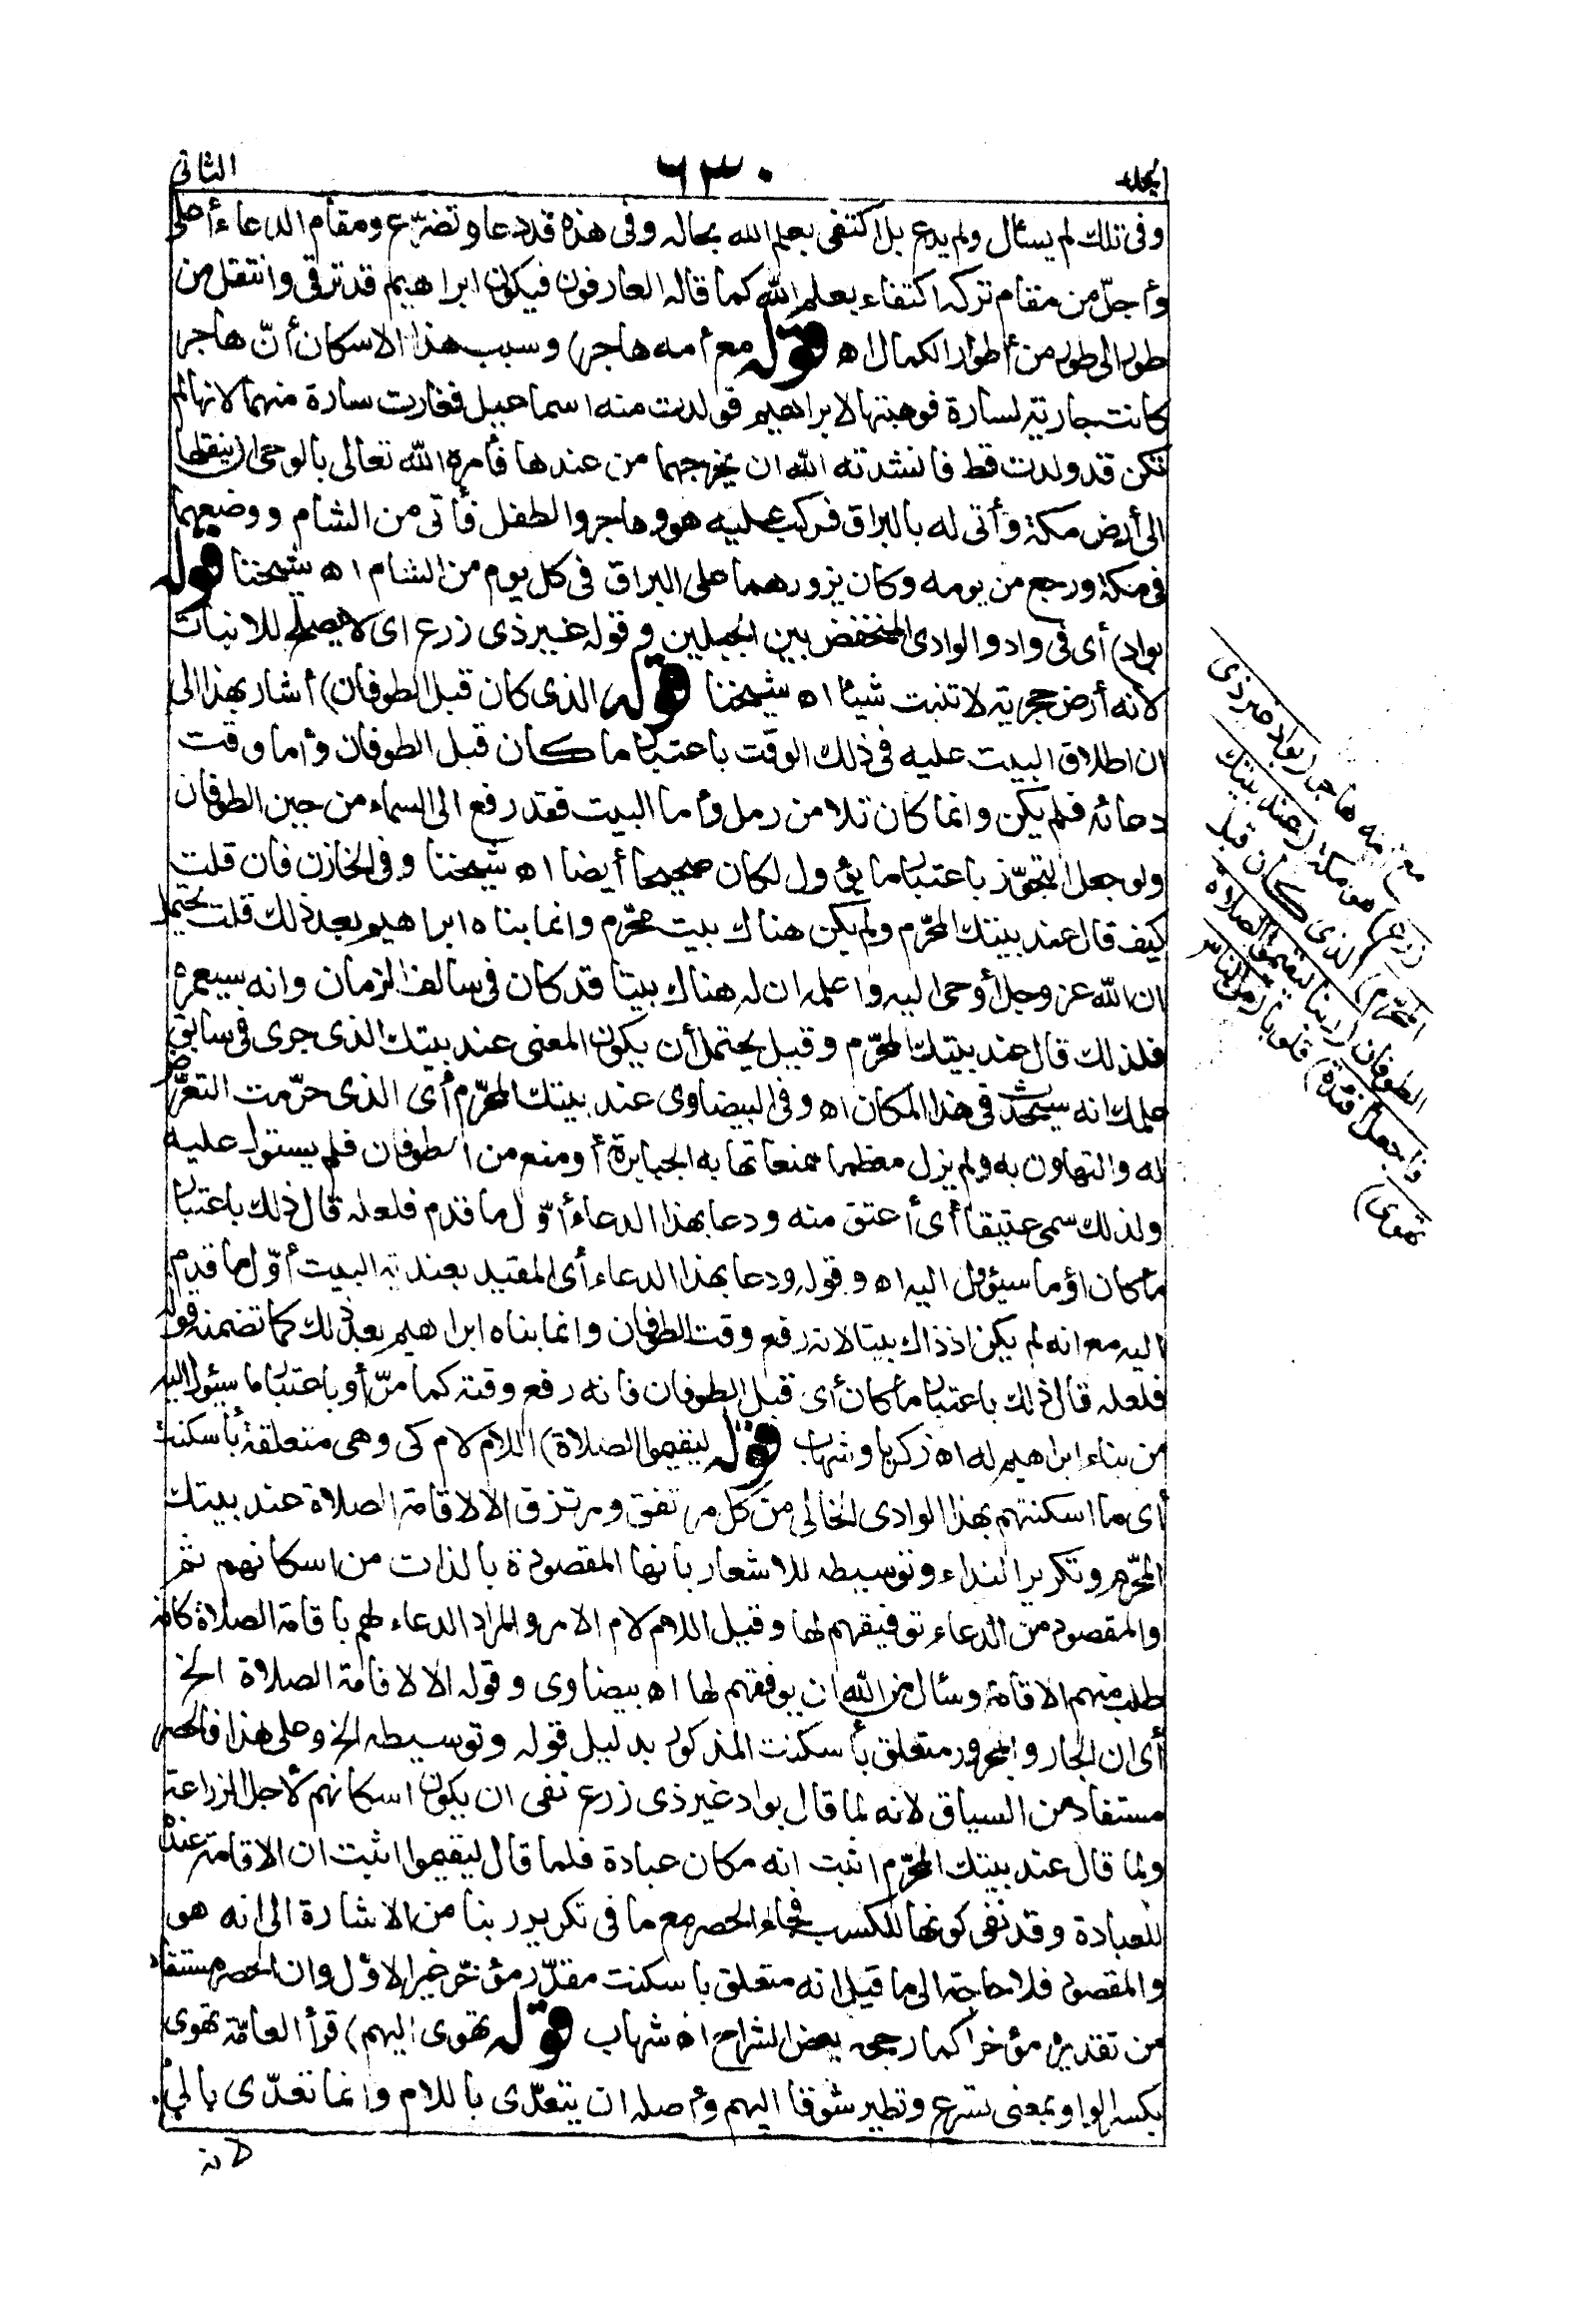 المجلد ٦٣٠ الثاني
وفى تلك لم يسئال ولم يدع بل اكتفى بعلم الله بحاله وفى هذه قد دعا وتضرّع ومقام الدعاء أعلى
وأجلّ من مقام تركه اكتفاء بعلم الله كما قاله العارفون فيكون ابراهيم قد ترقى وانتقل من
طور الى طور من أطوار الكمال اه قوله مع أمه هاجر) وسبب هذا الاسكان أنّ هاجر
كانت جارية لسارة فوهبتها لابراهيم فولدت منه اسماعيل فغارت سارة منهما لانها لم
تكن قد ولدت قط فانشدته الله ان يخرجهما من عندها فأمره الله تعالى بالوحى ان ينقلها
الى أرض مكة وأتى له بالبراق فركب عليه هو وهاجر والطفل فأتى من الشام ووضعهما
فى مكة ورجع من يومه وكان يزورهما على البراق فى كل يوم من الشام اه شيخنا قوله
بواد) أى فى واد والوادى المنخفض بين الجبلين وقوله غير ذى زرع اى لا يصلح للانبات
لانه أرض حجرية لا تنبت شيئا اه شيخنا قوله الذى كان قبل الطوفان) أشار بهذا الى
ان اطلاق البيت عليه فى ذلك الوقت باعتبار ما كان قبل الطوفان وأما وقت
دعائه فلم يكن وانما كان تلا من رمل وأما البيت فقد رفع الى السماء من حين الطوفان
ولو جعل التجوّز باعتبار ما يؤول لكان صحيحا أيضا اه شيخنا وفى الخازن فان قلت
كيف قال عند بيتك المحرّم ولم يكن هناك بيت محرّم وانما بناه ابراهيم بعد ذلك قلت يحتمل
ان الله عز وجل أوحى اليه واعلمه ان له هناك بيتا قد كان فى سالف الزمان وانه سيعمره
فلذلك قال عند بيتك المحرّم وقيل يحتمل أن يكون المعنى عند بيتك الذى جرى فى سابق
علمك انه سيحدث فى هذا المكان اه وفى البيضاوى عند بيتك المحرّم أى الذى حرّمت التعرّض
له والتهاون به ولم يزل معظما ممنعا تهابه الجبابرة أو منع من الطوفان فلم يستول عليه
ولذلك سمى عتيقا أى أعتق منه ودعا بهذا الدعاء أوّل ما قدم فلعله قال ذلك باعتبار
ما كان أو ما سيؤول اليه اه وقوله ودعا بهذا الدعاء أى المقيد بعندية البيت أوّل ما قدم
اليه مع انه لم يكن اذ ذاك بيتا لانه رفع وقت الطوفان وانما بناه ابراهيم بعد ذلك كما تضمنه قوله
فلعله قال ذلك باعتبار ما كان أى قبل الطوفان فانه رفع وقته كما مرّ أو باعتبار ما سيئول اليه
من بناء ابراهيم له اه زكريا وشهاب قوله ليقيموا الصلاة) اللام لام كى وهى متعلقة بأسكنت
أى ما اسكنتهم بهذا الوادى الخالى من كل مرتفق ومرتزق الا لاقامة الصلاة عند بيتك
المحرّم وتكرير النداء وتوسيطه للاشعار بانها المقصودة بالذات من اسكانهم ثم
والمقصود من الدعاء توفيقهم لها وقيل اللام لام الامر والمراد الدعاء لهم باقامة الصلاة كانه
طلب منهم الاقامة وسئال من الله ان يوفقهم لها اه بيضاوى وقوله الا لاقامة الصلاة الخ
أى ان الجار والمجرور متعلق بأسكنت المذكور بدليل قوله وتوسيطه الخ وعلى هذا فالحصر
مستفاد من السياق لانه لما قال بواد غير ذى زرع نفى ان يكون اسكانهم لأجل الزراعة
ولما قال عند بيتك المحرّم اثبت انه مكان عبادة فلما قال ليقيموا اثبت ان الاقامة عنده
للعبادة وقد نفى كونها للكسب فجاء الحصر مع ما فى تكرير ربنا من الاشارة الى انه هو
والمقصود فلا حاجة الى ما قيل انه متعلق باسكنت مقدّر مؤخّر غير الاوّل وان الحصر مستفاد
من تقديره مؤخرا كما رجحه بعض الشراح اه شهاب قوله تهوى اليهم) قرأ العامّة تهوى
بكسر الواو بمعنى تسرع وتطير شوقا اليهم وأصله ان يتعدّى باللام وانما تعدّى بالى
لانه
مع أمه هاجر (بواد غير ذى
زرع) هو مكة (عند بيتك
المحرّم) الذى كان قبل
الطوفان (ربنا ليقيموا الصلاة
فاجعل أفئدة) قلوبا (من الناس
تهوى)